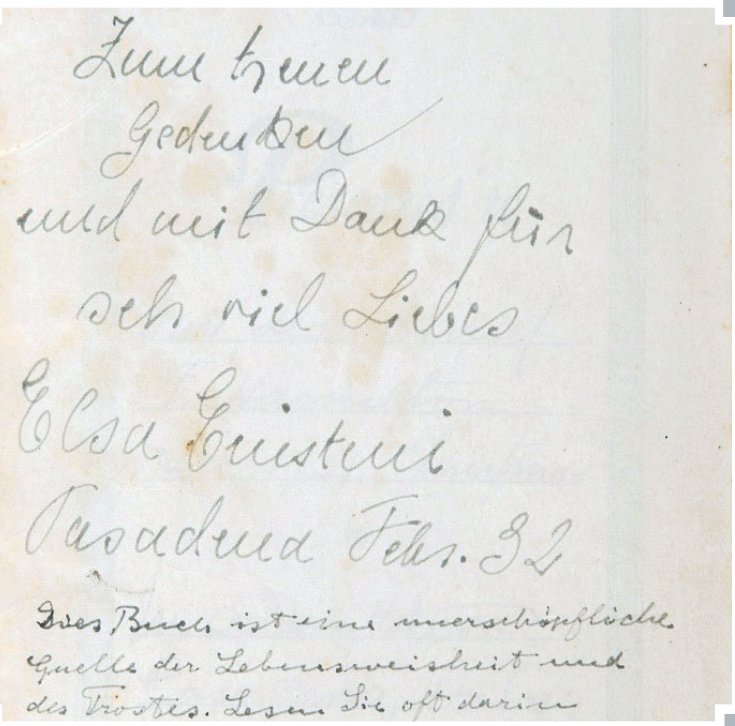 Zum treuen
Gedenken
und mit Dank für
sehr viel Liebes
Elsa Einstein
Pasadena Febr. 32
Dies Buch ist eine unerschöpfliche
Quelle der Lebensweisheit und
des Trostes. Lesen Sie oft darin